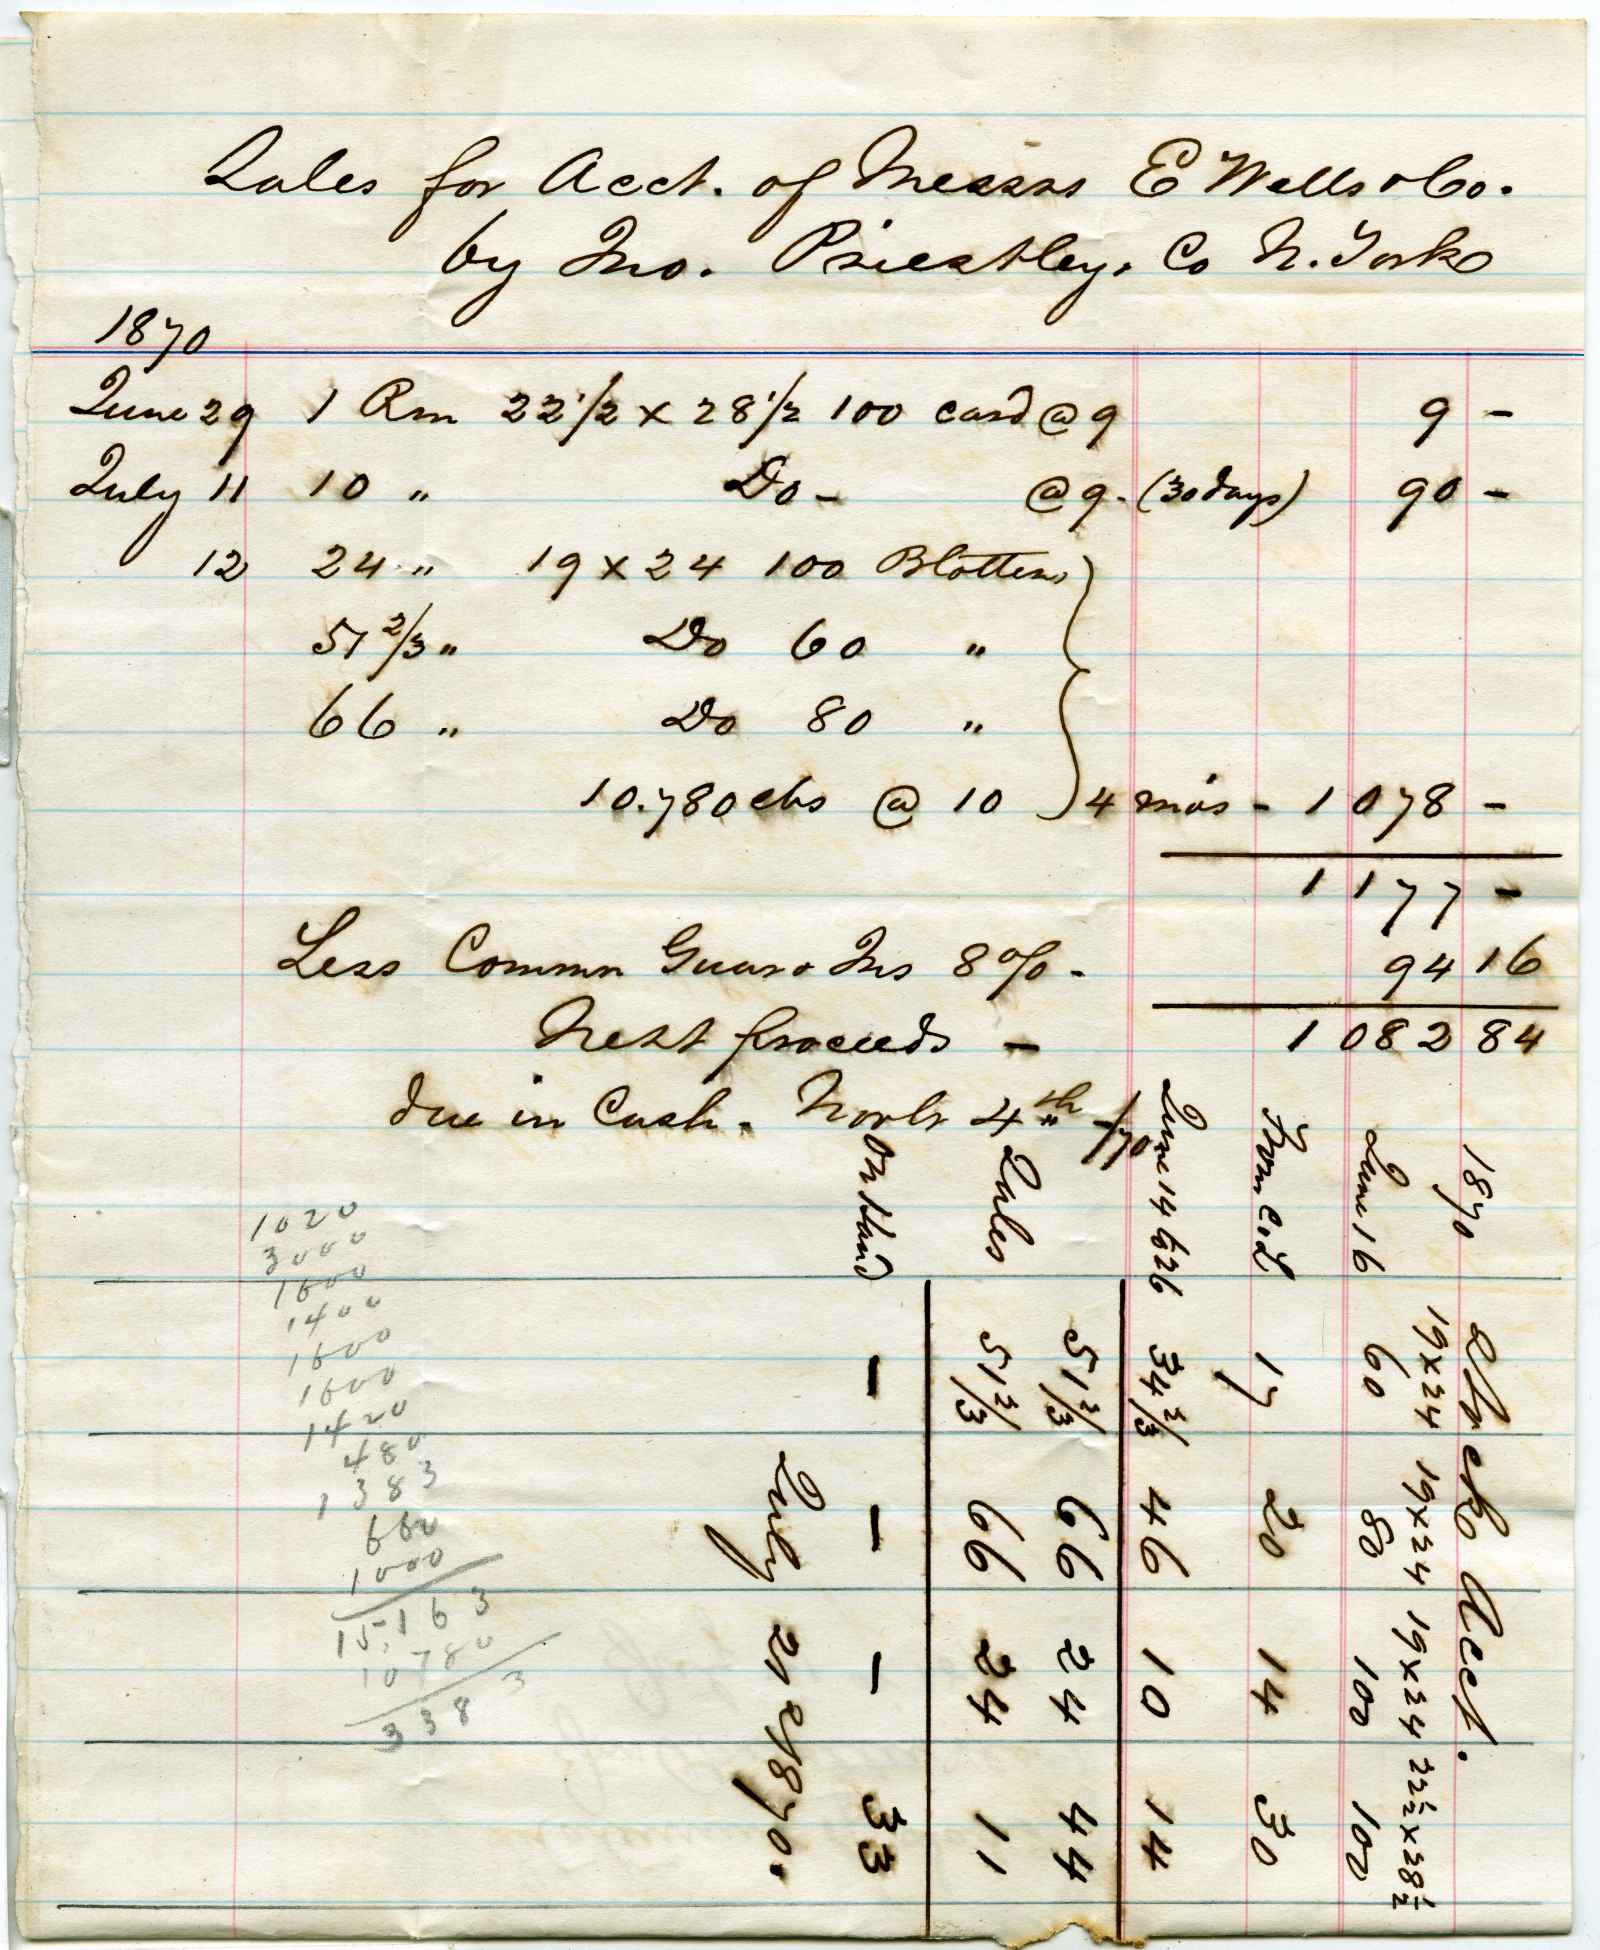 Sales for Acct. of Messrs E Wells & Co.
by Jno. Priestley, Co N. York
1870
June 29 1 Rm 22 1/2 x 28 1/2 100 card @ 9 9 -
July 11 10 " Do - @ 9 - (30 days) 90 -
12 24 " 19 x 24 100 Blotten
51 2/3 " Do 60 "
66 " Do 80 "
10.780 lbs @ 10 4 mos - 1078 -
1177 -
Less Common Guar & Ins 8% - 94 16
Nett proceeds - 1082 84
due in Cash. Novbr 4th /70
1020
3000
1600
1400
1600
1600
1420
480
1383
660
1000
15,163
10780
3383
Stock Acct.
1870 19x24 19x24 19x24 22 1/2 x 28 1/2
June 16 60 80 100 100
From C.L 17 20 14 30
June 14 & 26 34 2/3 46 10 14
51 2/3 66 24 44
Sales 51 2/3 66 24 11
On Hand - - - 33
July 21st 1870.